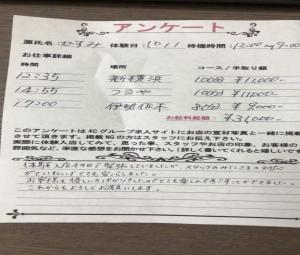 アンケート
源氏名:むすみ 体験日:10/11 待機時間:12:00~9:00
お仕事詳細
時間 場所 コース/手取り額
12:35 新横浜 100分 ¥11,000-
14:55 つるや 100分 ¥11,000-
17:00 伊勢佐木 80分 ¥9000-
お給料総額: ¥31,000-
このアンケートは4Cグループ求人サイトにお店の宣材写真と一緒に掲載
させて頂きます。掲載NGの方はスタッフにお伝え下さい。
実際に体験入店してみて、思った事、スタッフやお店の印象、お客様の
雰囲気など、率直な感想をお聞かせ下さい。(詳しく書いてくれると嬉しいです
体験入店初日で緊張していましたが、スタッフのみなさまの対応
がていねいでとても安心しました。
お客様も優しい方ばかりでしたのでとても楽しくすごすことができました。
これからもよろしくお願いします。